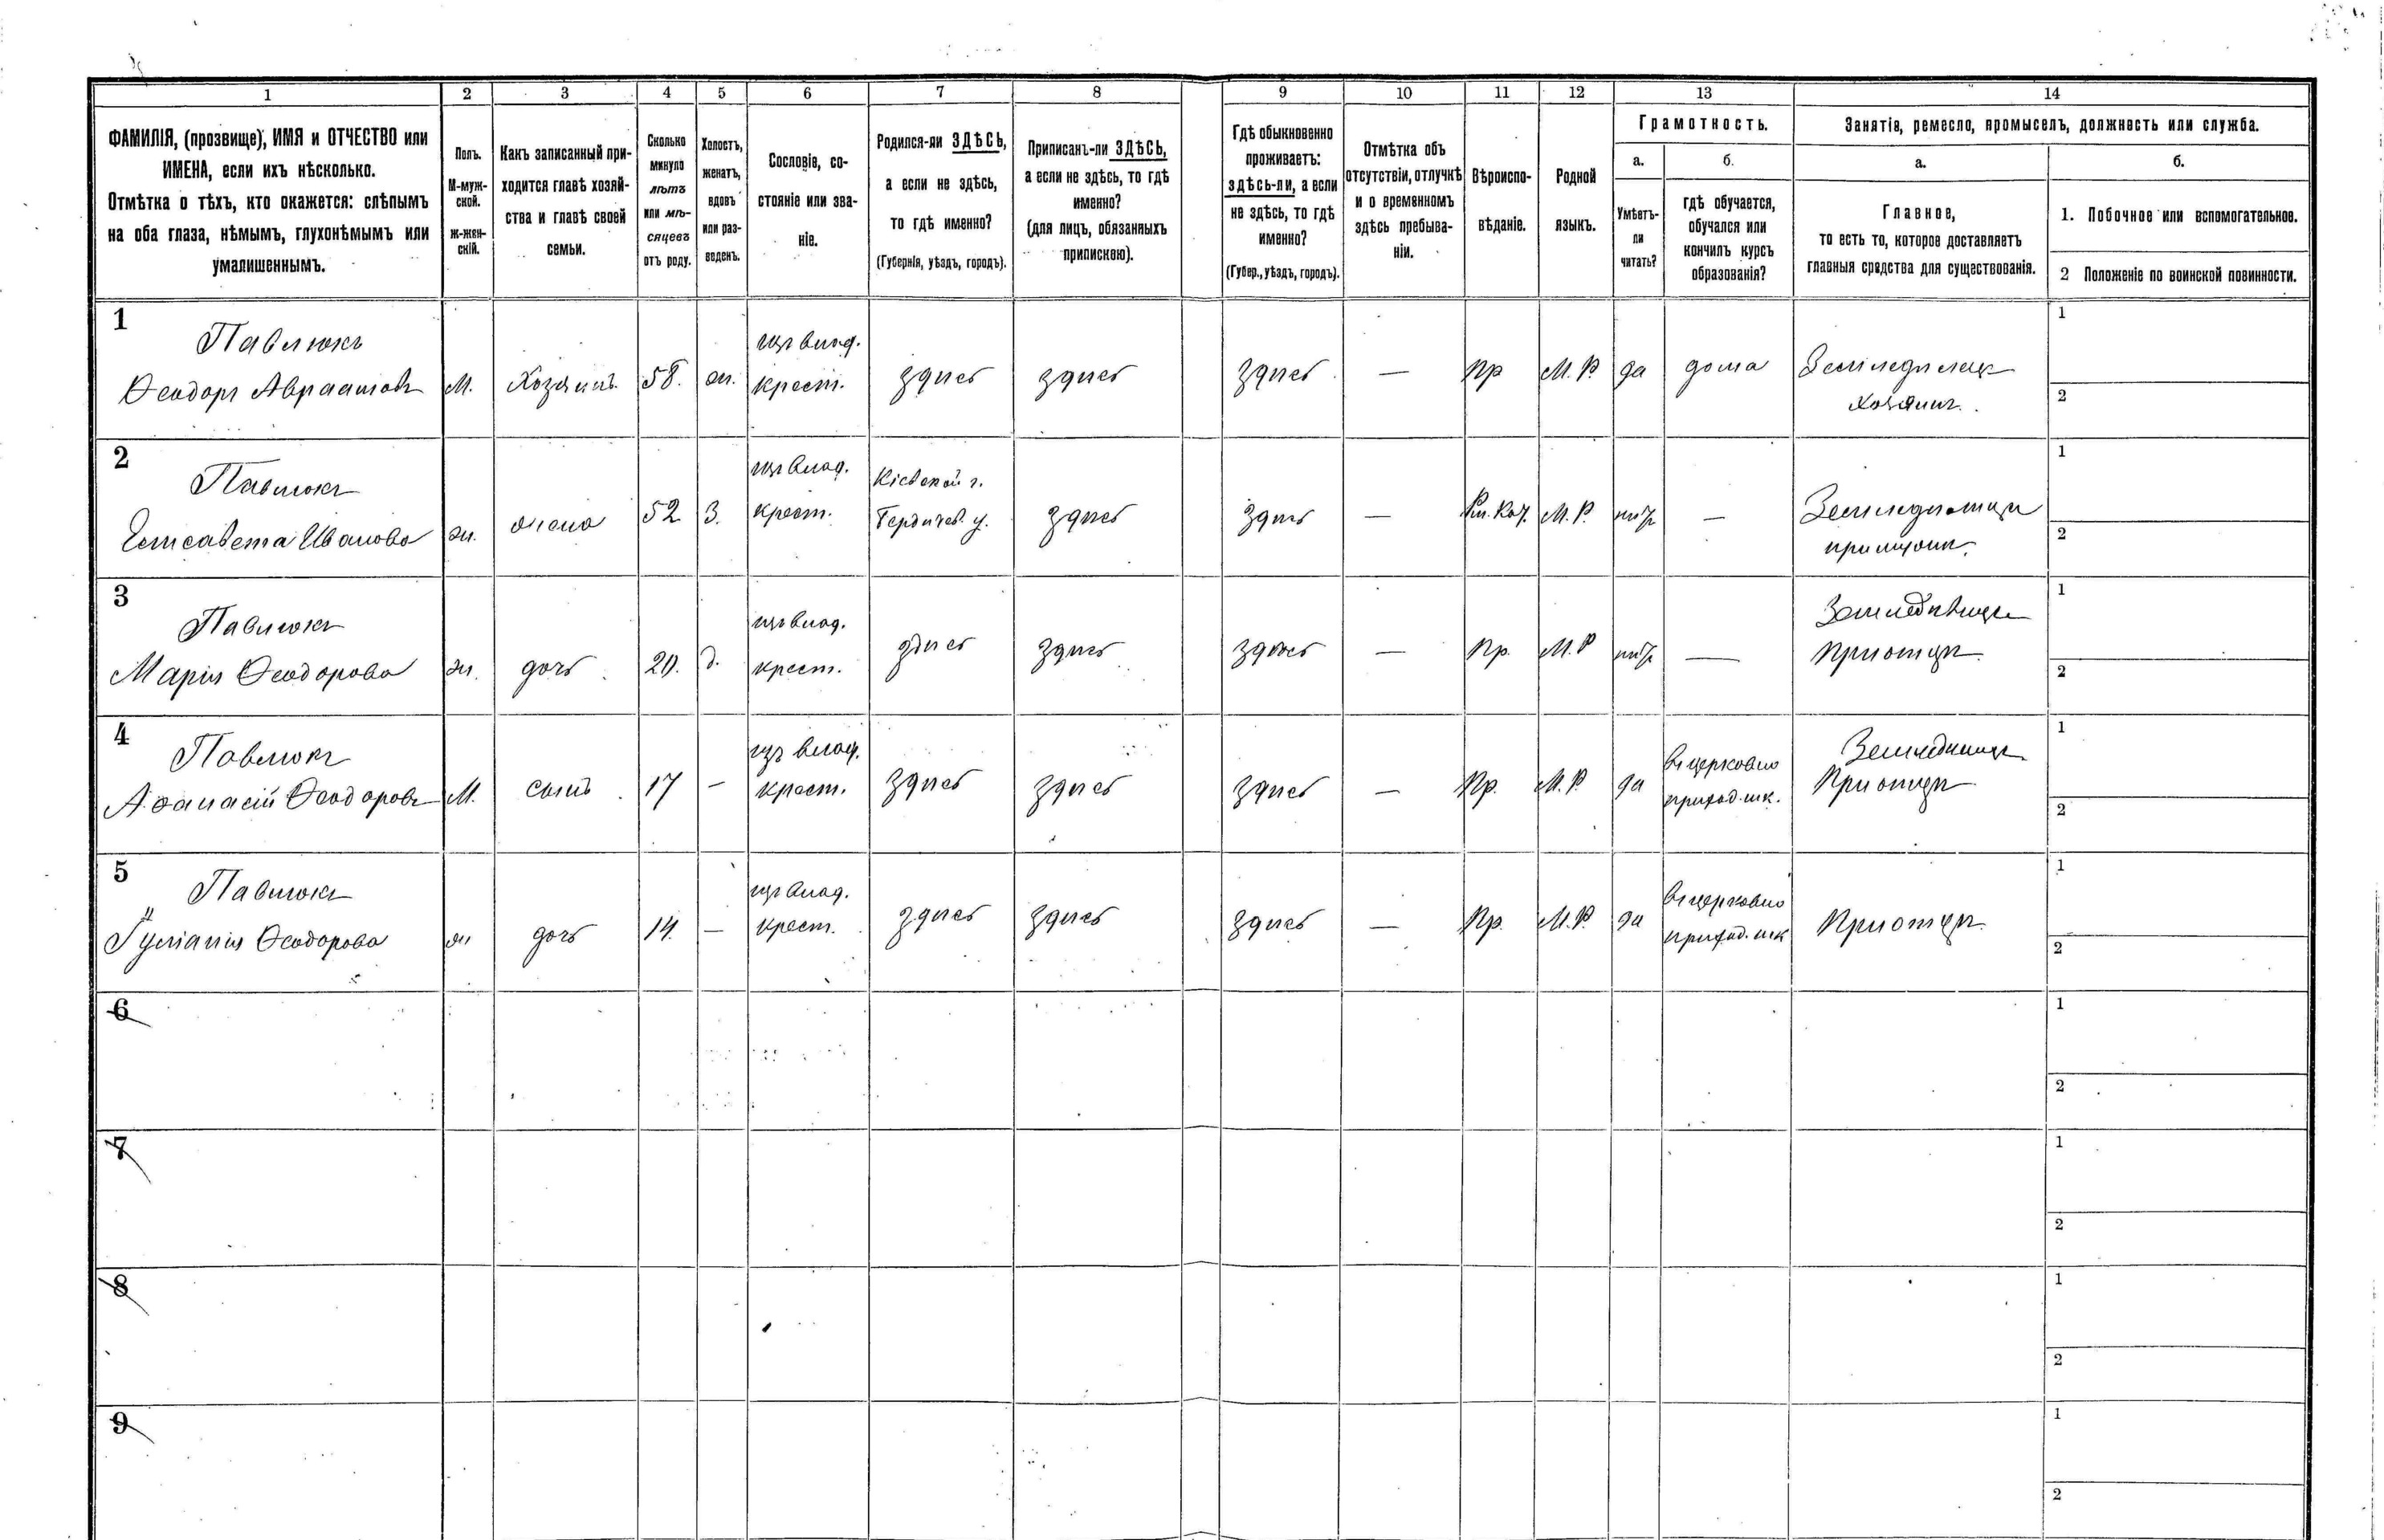 1 2 3 4 5 6 7 8 9 10 11 12 13 14
ФАМИЛІЯ, (прозвище), ИМЯ и ОТЧЕСТВО или
ИМЕНА, если ихъ нѣсколько.
Отмѣтка о тѣхъ, кто окажется: слѣпымъ
на оба глаза, нѣмымъ, глухонѣмымъ или
умалишеннымъ.
Полъ.
М-муж-
ской.
Ж-жен-
скій.
Какъ записанный при-
ходится главѣ хозяй-
ства и главѣ своей
семьи.
Сколько
минуло
лѣтъ
или мѣ-
сяцевъ
отъ роду.
Холостъ,
женатъ,
вдовъ
или раз-
веденъ.
Сословіе, со-
стояніе или зва-
ніе.
Родился-ли ЗДѢСЬ,
а если не здѣсь,
то гдѣ именно?
(Губернія, уѣздъ, городъ).
Приписанъ-ли ЗДѢСЬ,
а если не здѣсь, то гдѣ
именно?
(для лицъ, обязанныхъ
припискою).
Гдѣ обыкновенно
проживаетъ:
здѣсь-ли, а если
не здѣсь, то гдѣ
именно?
(Губер., уѣздъ, городъ).
Отмѣтка объ
отсутствіи, отлучкѣ
и о временномъ
здѣсь пребыва-
ніи.
Вѣроиспо-
вѣданіе.
Родной
языкъ.
Грамотность.
а.
Умѣетъ-
ли
читать?
б.
гдѣ обучается,
обучался или
кончилъ курсъ
образованія?
Занятія, ремесло, промыселъ, должность или служба.
а.
Главное,
то есть то, которое доставляетъ
главныя средства для существованія.
б.
1. Побочное или вспомогательное.
2 Положеніе по воинской повинности.
1
Павлюкъ
Ѳеодоръ Авраамовъ
М. Хозяинъ 58. ж.
изъ влад.
крест.
здѣсь здѣсь здѣсь — Пр М. Р. да дома
Земледѣлец
хозяинъ.
1
2
2
Павлюкъ
Елисавета Иванова
ж. жена 52 З.
изъ влад.
крест.
Кіевской г.
Бердичев. у.
здѣсь здѣсь — Рим. Кат. М. Р. нѣтъ —
1
2
3
Павлюкъ
Марія Ѳеодорова
ж. дочь 20. д.
изъ влад.
крест.
здѣсь здѣсь здѣсь — Пр. М. Р нѣтъ —
При отцѣ
1
2
4
Павлюкъ
Аѳанасій Ѳеодоровъ
М. сынъ 17 —
изъ влад.
крест.
здѣсь здѣсь здѣсь — Пр. М. Р да
въ церковно
приход. шк.
При отцѣ
1
2
5
Павлюкъ
Іуліанія Ѳеодорова
ж дочь 14 —
изъ влад.
крест.
здѣсь здѣсь здѣсь — Пр. М. Р. да
въ церковно
приход. шк
При отцѣ
1
2
6
1
2
7
1
2
8
1
2
9
1
2